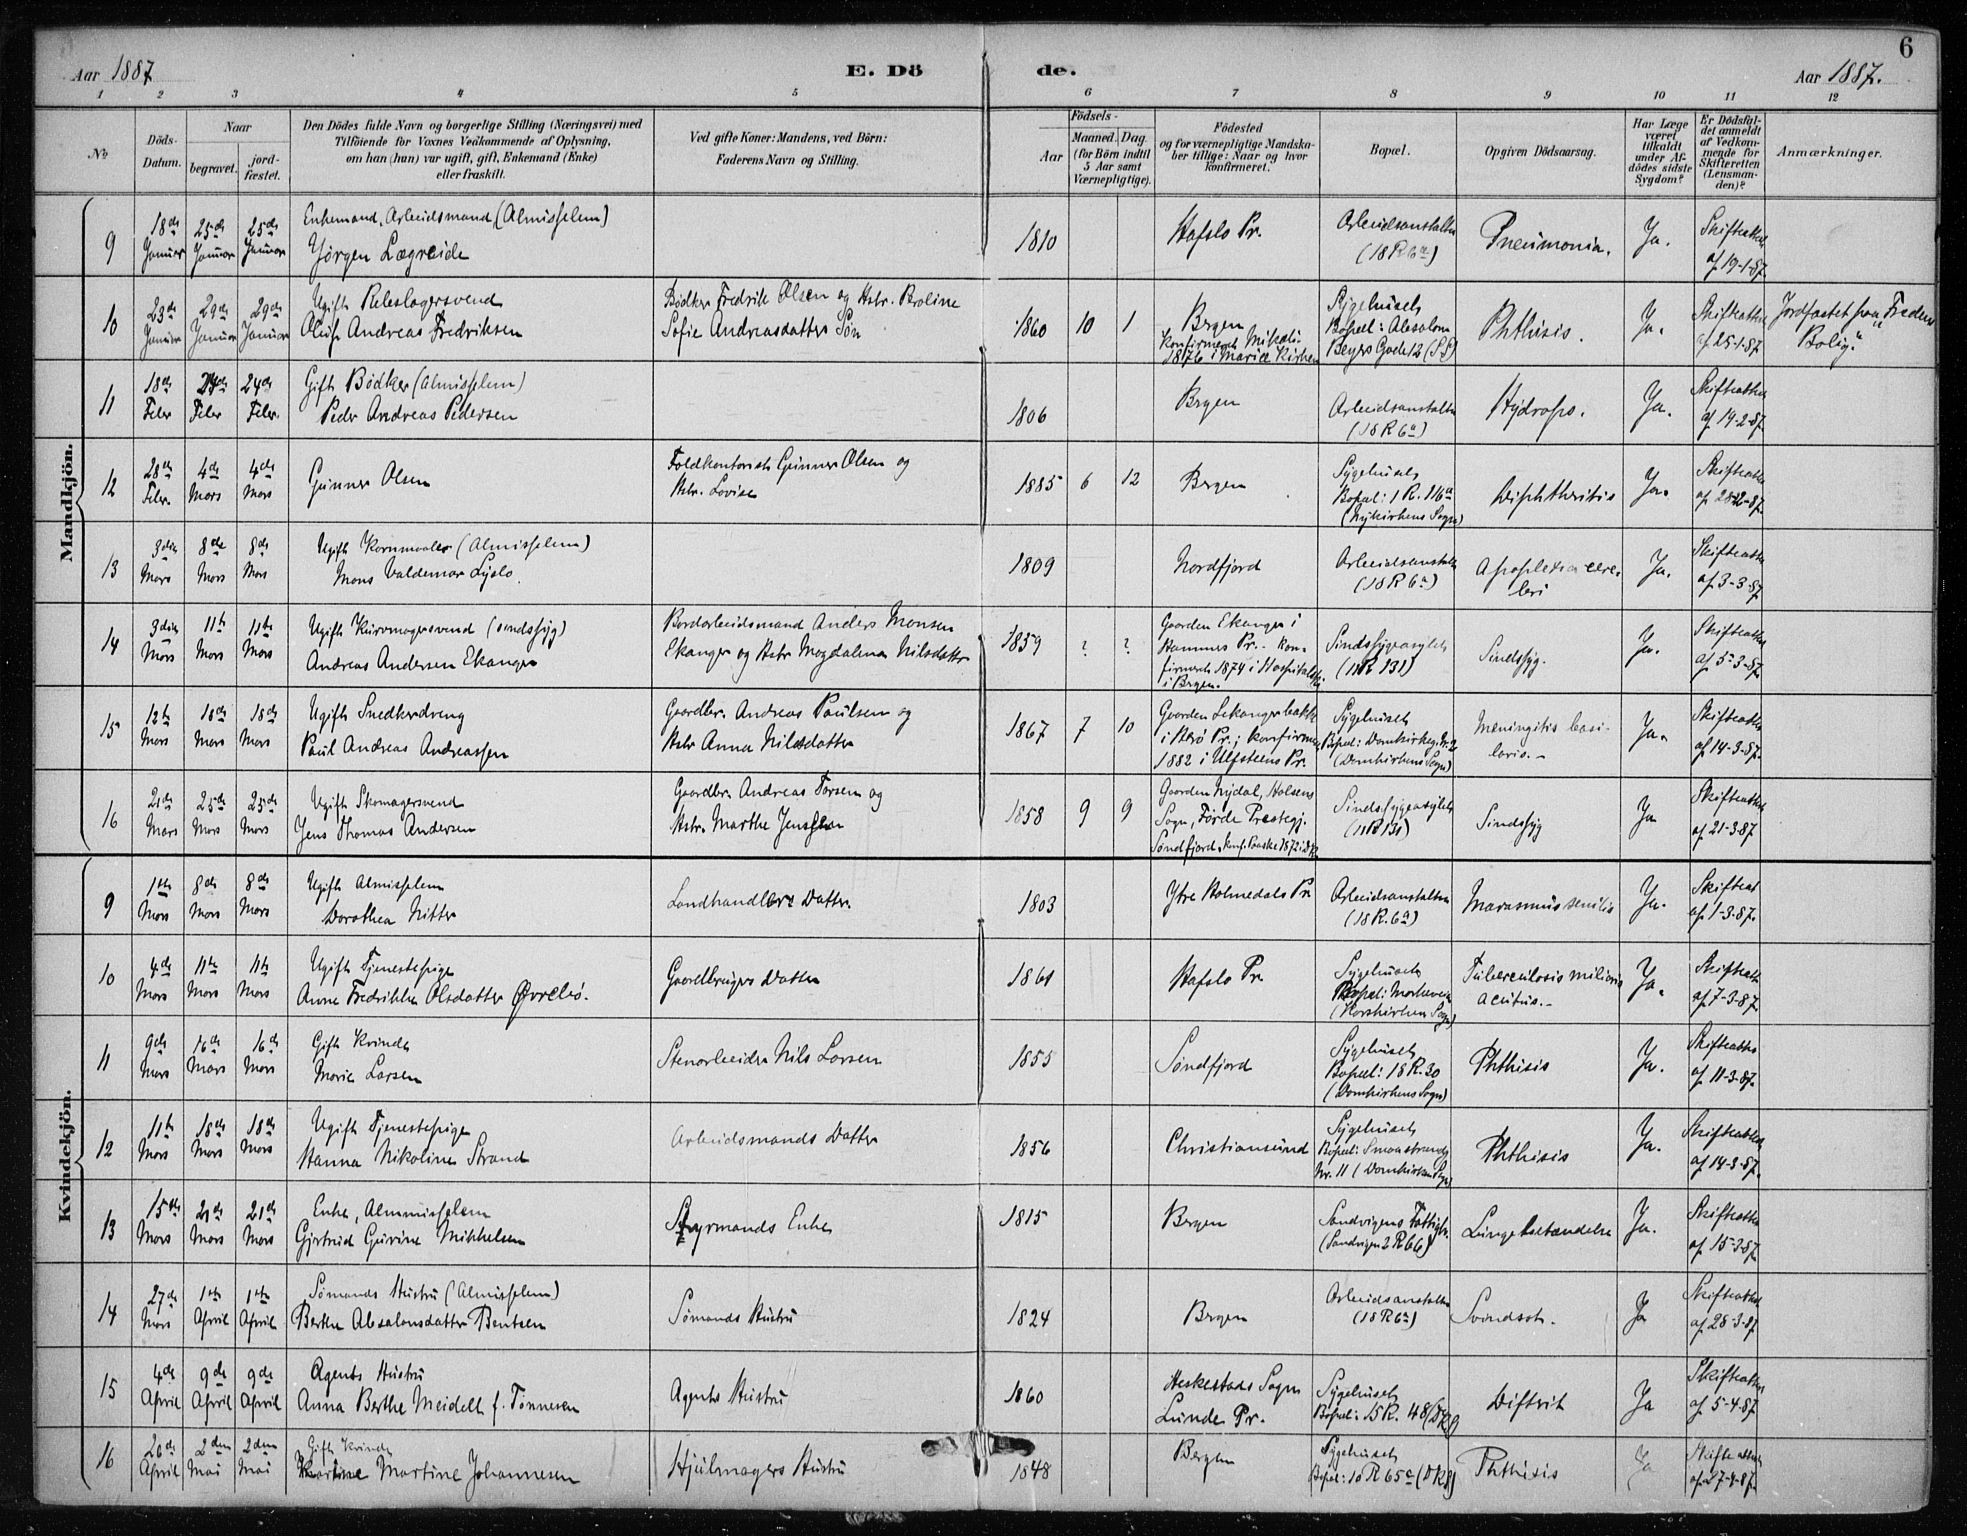 6
Aar 1887
E. Dö
de.
Aar 1887.
1 2 3 4 5 6 7 8 9 10 11 12
No
Döds-Datum.
Naar
begravet.
jord-fæstet.
Den Dödes fulde Navn og borgerlige Stilling (Næringsvei) med
Tilföiende for Voxnes Vedkommende af Oplysning,
om han (hun) var ugift, gift, Enkemand (Enke)
eller fraskilt.
Ved gifte Koner: Mandens, ved Börn:
Faderens Navn og Stilling.
Födsels-
Aar
Maaned. Dag.
(for Börn indtil
5 Aar samt
Værnepligtige).
Födested
og for værnepligtige Mandska-
ber tillige: Naar og hvor
konfirmeret.
Bopæl.
Opgiven Dödsaarsag.
Har Læge
været
tilkaldt
under Af-
dödes sidste
Sygdom?
Er Dödsfal-
det anmeldt
af Vedkom-
mende for
Skifteretten
(Lensman-
den)?
Anmærkninger.
Mandkjön.
9
18de Januar
25de Januar
25de Januar
Enkemand, Arbeidsmand (Almisselem)
Jörgen Lægreide
1810
Hafslo Pr.
Arbeidsanstalten
(18 R 6a)
Pneumonia.
Ja.
Skifteattest
af 19-1-87.
10
23de Januar
29de Januar
29de Januar
Ugift Rebslagersvend
Oluf Andreas Fredriksen
Bødker Fredrik Olsen og Hstr. Broline
Sofie Andreasdatters Søn
1860 10 1
Bergen
Konfirmeret Mikaeli
1876 i Mariæ Kirken
Sygehuset
Bopæl: Absalon
Beyers Gade 12 (S.S)
Phthisis.
Ja.
Skifteattest
af 25-1-87.
Jordfæstet fra "Fredens
Bolig."
11
18de Febr
24de Febr
24de Febr.
Gift Bødker (Almisselem)
Peder Andreas Pedersen
1806
Bergen
Arbeidsanstalten
(18 R 6a)
Hydrops.
Ja.
Skifteattest
af 19-2-87.
12
28de Febr
4de Mars
4de Mars
Gunner Olsen
Toldkontorist Gunner Olsen og
Hstr. Lovise
1885 6 12
Bergen
Sygehuset
Bopæl: 1 R. 116a
(Nykirkens Sogn)
Diphtheritis
Ja.
Skifteattest
af 28-2-87.
13
3die Mars
8de Mars
8de Mars
Ugift Kornmaaler (Almisselem)
Mons Valdemar Lyslo.
1809
Nordfjord
Arbeidsanstalten
(18 R 6a)
Apoplexia cere-
bri
Ja.
Skifteattest
af 3-3-87.
14
3die Mars
11te Mars
11te Mars
Ugift Kurvmagersvend (sindssyg)
Andreas Andersen Ekanger
Bordarbeidsmand Anders Monsen
Ekanger og Hstr Magdalena Nilsdatter
1859 ? ?
Gaarden Ekanger i
Hammers Pr.. kon-
firmeret 1874 i Hospitalsk.
i Bergen.
Sindssygeasylet
(11 R 131)
Sindssyg.
Ja.
Skifteattest
af 5-3-87.
15
12te Mars
18de Mars
18de Mars
Ugift Snedkerdreng
Paul Andreas Andreassen
Gaardbr. Andreas Paulsen og
Hstr Anna Nilsdatter
1867 7 10
Gaarden Lekangerbakke
i Herø Pr.; konfirmer.
1882 i Ulfsteens Pr.
Sygehuset
Bopæl: Domkirkeg. Nr. 2
(Domkirkens Sogn)
Meningitis basi-
laris.-
Ja.
Skifteattest
af 14-3-87.
16
21de Mars
25de Mars
25de Mars
Ugift Skomagersvend
Jens Thomas Andersen
Gaardbr. Andreas Larsen og
Hstr. Marthe
1858 9 9
Gaarden Nydal, Holsens
Sogn, Førde Prestegj.
Søndfjord, konf. Paaske 1872 i
Sindssygeasylet
(11 R 131)
Sindssyg
Ja
Skifteattest
af 21-3-87
Kvindekjön.
9
1ste Mars
8de Mars
8de Mars
Ugift Almisselem
Dorothea Nitter
Landhandlers Datter
1803
Ytre Holmedals Pr.
Arbeidsanstalten
(18 R. 6a)
Marasmus senilis
Ja.
Skifteat
af 1-3-87.
10
4de Mars
11te Mars
11te Mars
Ugift Tjenestepige
Anne Fredrikke Olsdatter Øvrebø.
Gaardbrugers Datter
1861
Hafslo Pr.
Sygehuset
Bopæl: Markeveien
(Korskirken Sogn)
Tuberculosis miliaris
acutus.-
Ja.
Skifteattest
af 7-3-87.
11
9de Mars
16de Mars
16de Mars
Gift Kvinde
Marie Larsen
Stenarbeider Nils Larsen
1855
Søndfjord
Sygehuset
Bopæl: 18 R. 30
(Domkirkens Sogn)
Phthisis
Ja.
Skifteattest
af 11-3-87.
12
11te Mars
18de Mars
18de Mars
Ugift Tjenestepige
Hanna Nikoline Strand
Arbeidsmands Datter
1856
Christiansund
Sygehuset
Bopæl: Smaastrandg.
Nr. 11 (Domkirken Sogn)
Phthisis
Ja.
Skifteattest
af 14-3-87.
13
15de Mars
21de Mars
21de Mars
Enke, Almmisselem
Gjertrud Gurine Mikkelsen
Styrmands Enke
1815
Bergen
Sandvigens Fattigh.
(Sandvigen 2 R 66)
Lungebetændelse
Ja.
Skifteattest
af 15-3-87.
14
27de Mars
1ste April
1ste April
Sømands Hustru (Almisselem)
Berthe Absalonsdatter Bentsen
Sømands Hustru
1824
Bergen
Arbeidsanstalten
(18 R 6a)
Svindsot.
Ja
Skifteattest
af 28-3-87.
15
4de April
9de April
9de April
Agents Hustru
Anna Berthe Meidell f. Tønnesen
Agents Hustru
1860
Heskestads Sogn
Lunde Pr.
Sygehuset
Bopæl: 15 R. 48 (D.K.S)
Diftrit
Ja
Skifteattest
af 5-4-87.
16
26de April
2den Mai
2den Mai
Gift Kvinde
Martine Johannesen
Hjulmagers Hustru
1848
Bergen
Sygehuset
Bopæl: 10 R 65c (D K S)
Phthisis
Ja
Skifteattest
af 27-4-87.